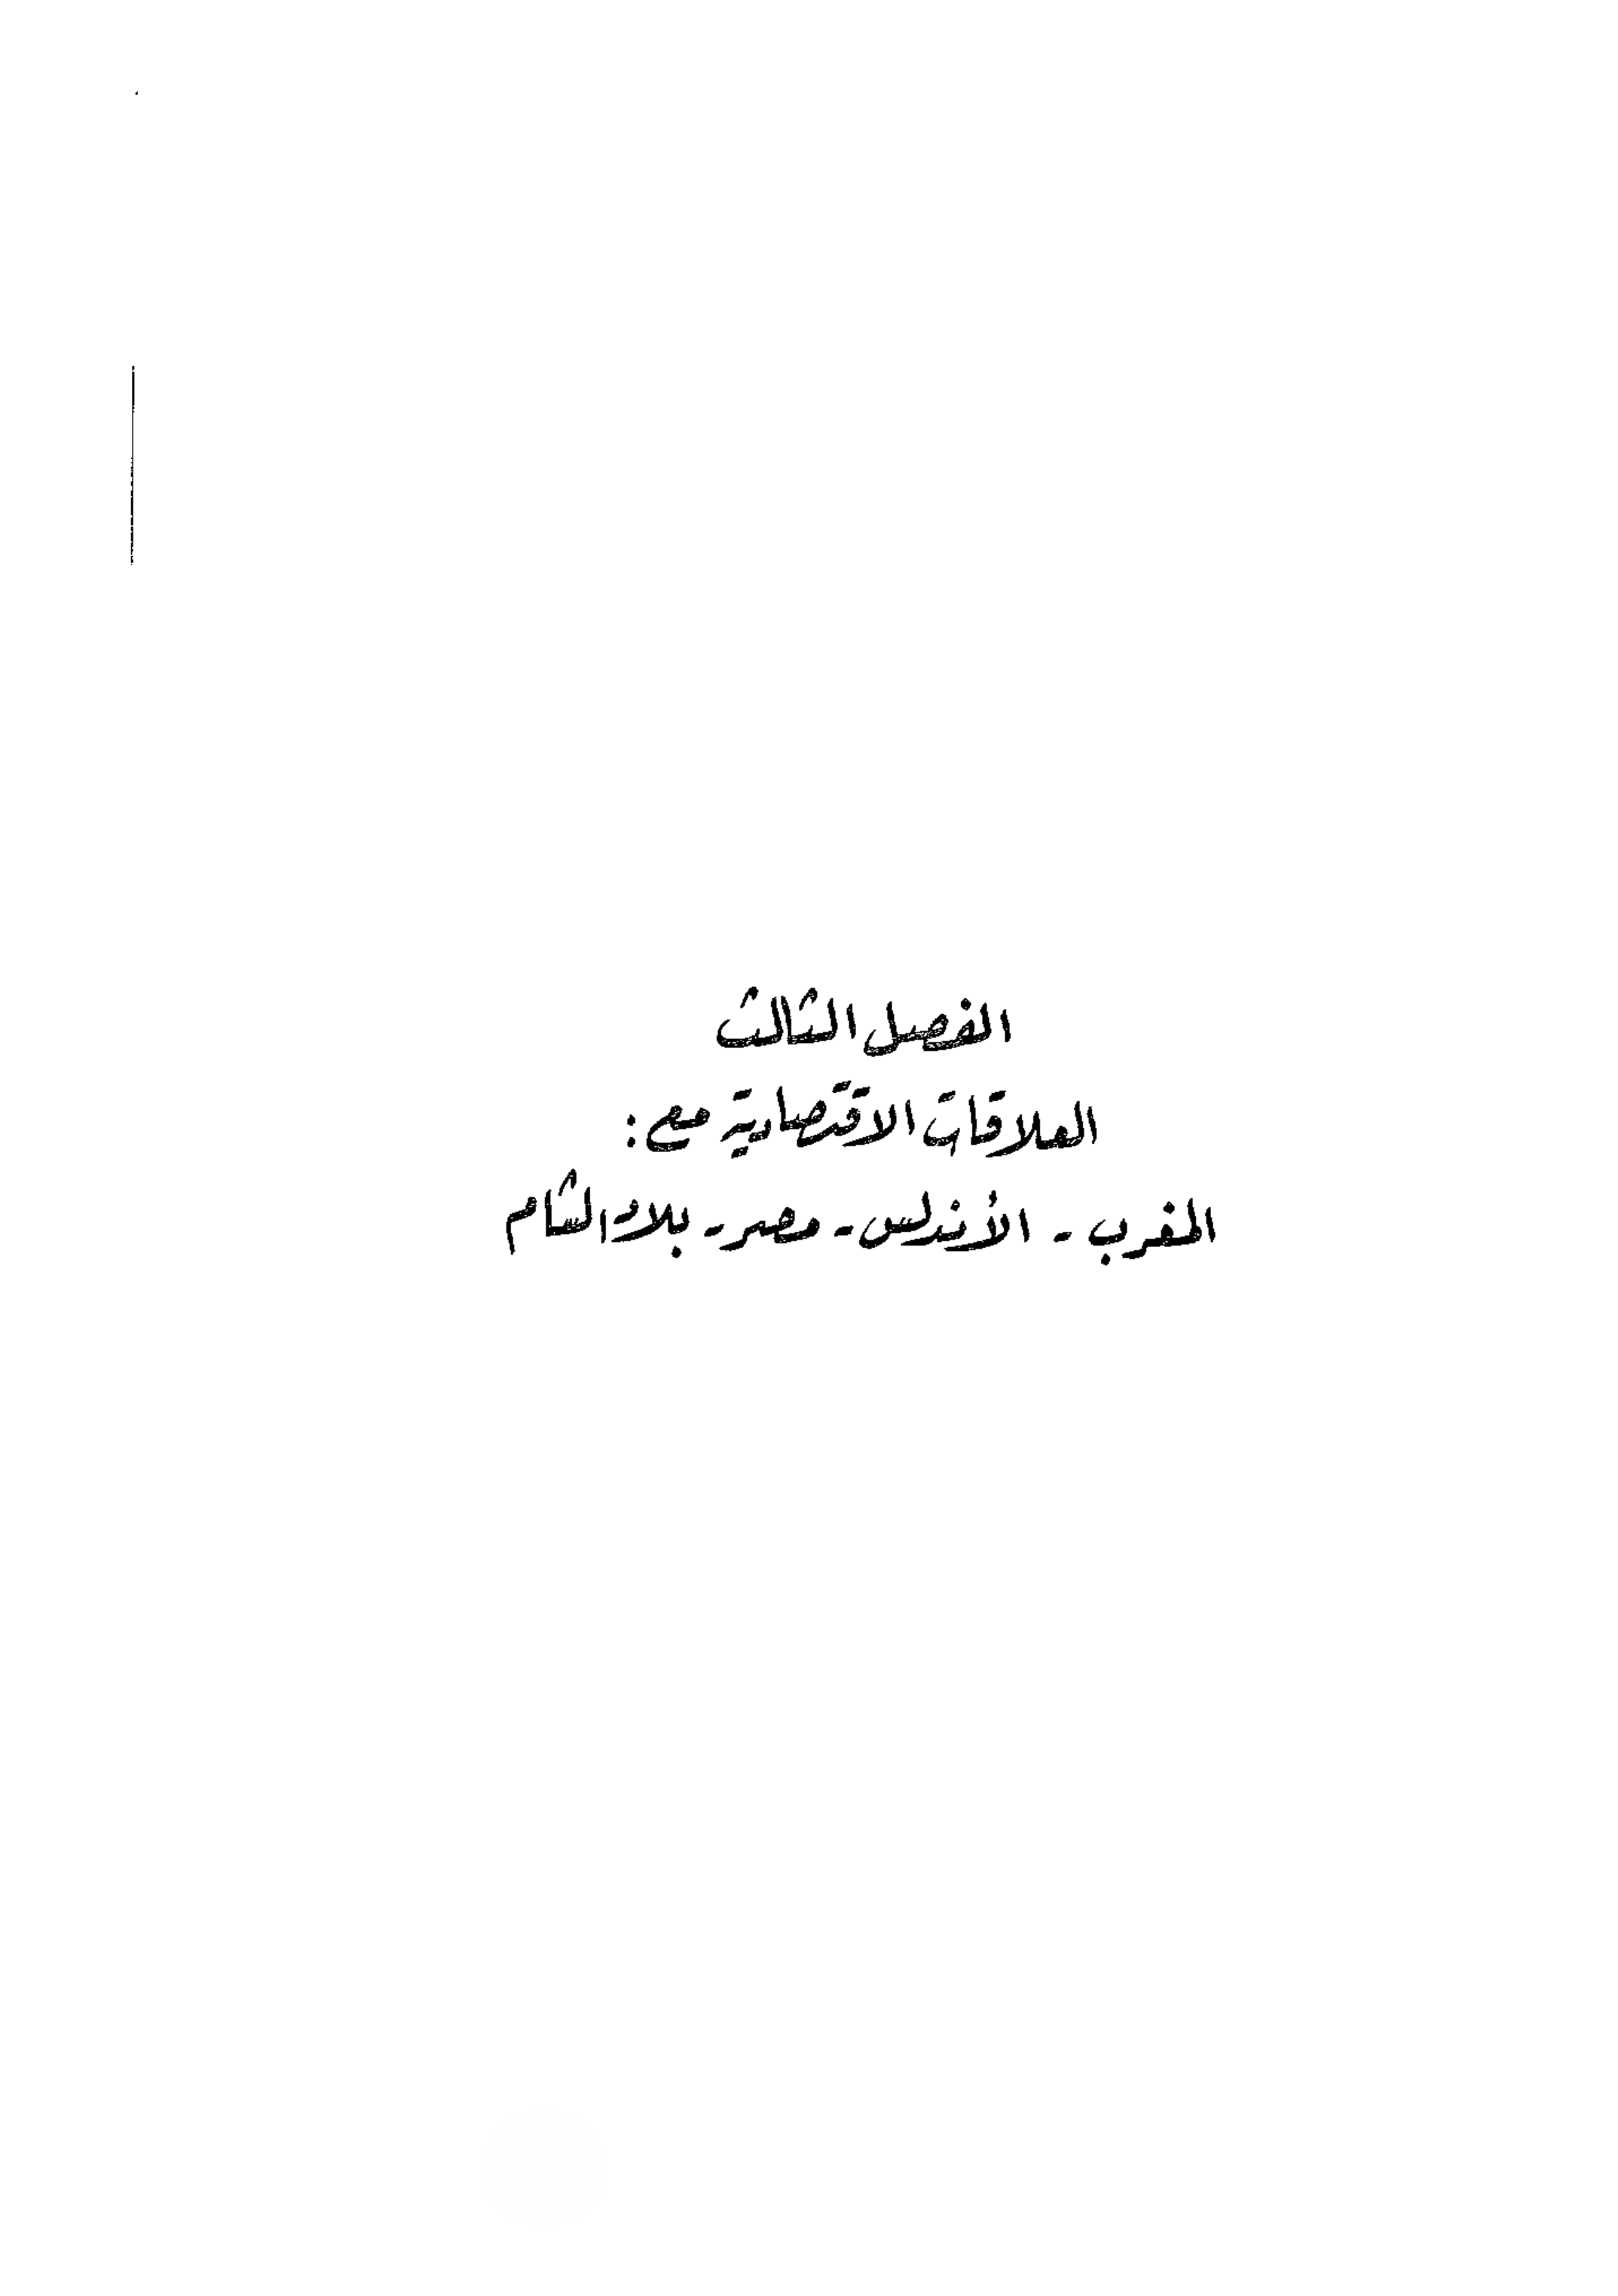 الفصل الثالث
العلاقات الاقتصادية مع :
المغرب - الأندلس - مصر - بلاد الشام